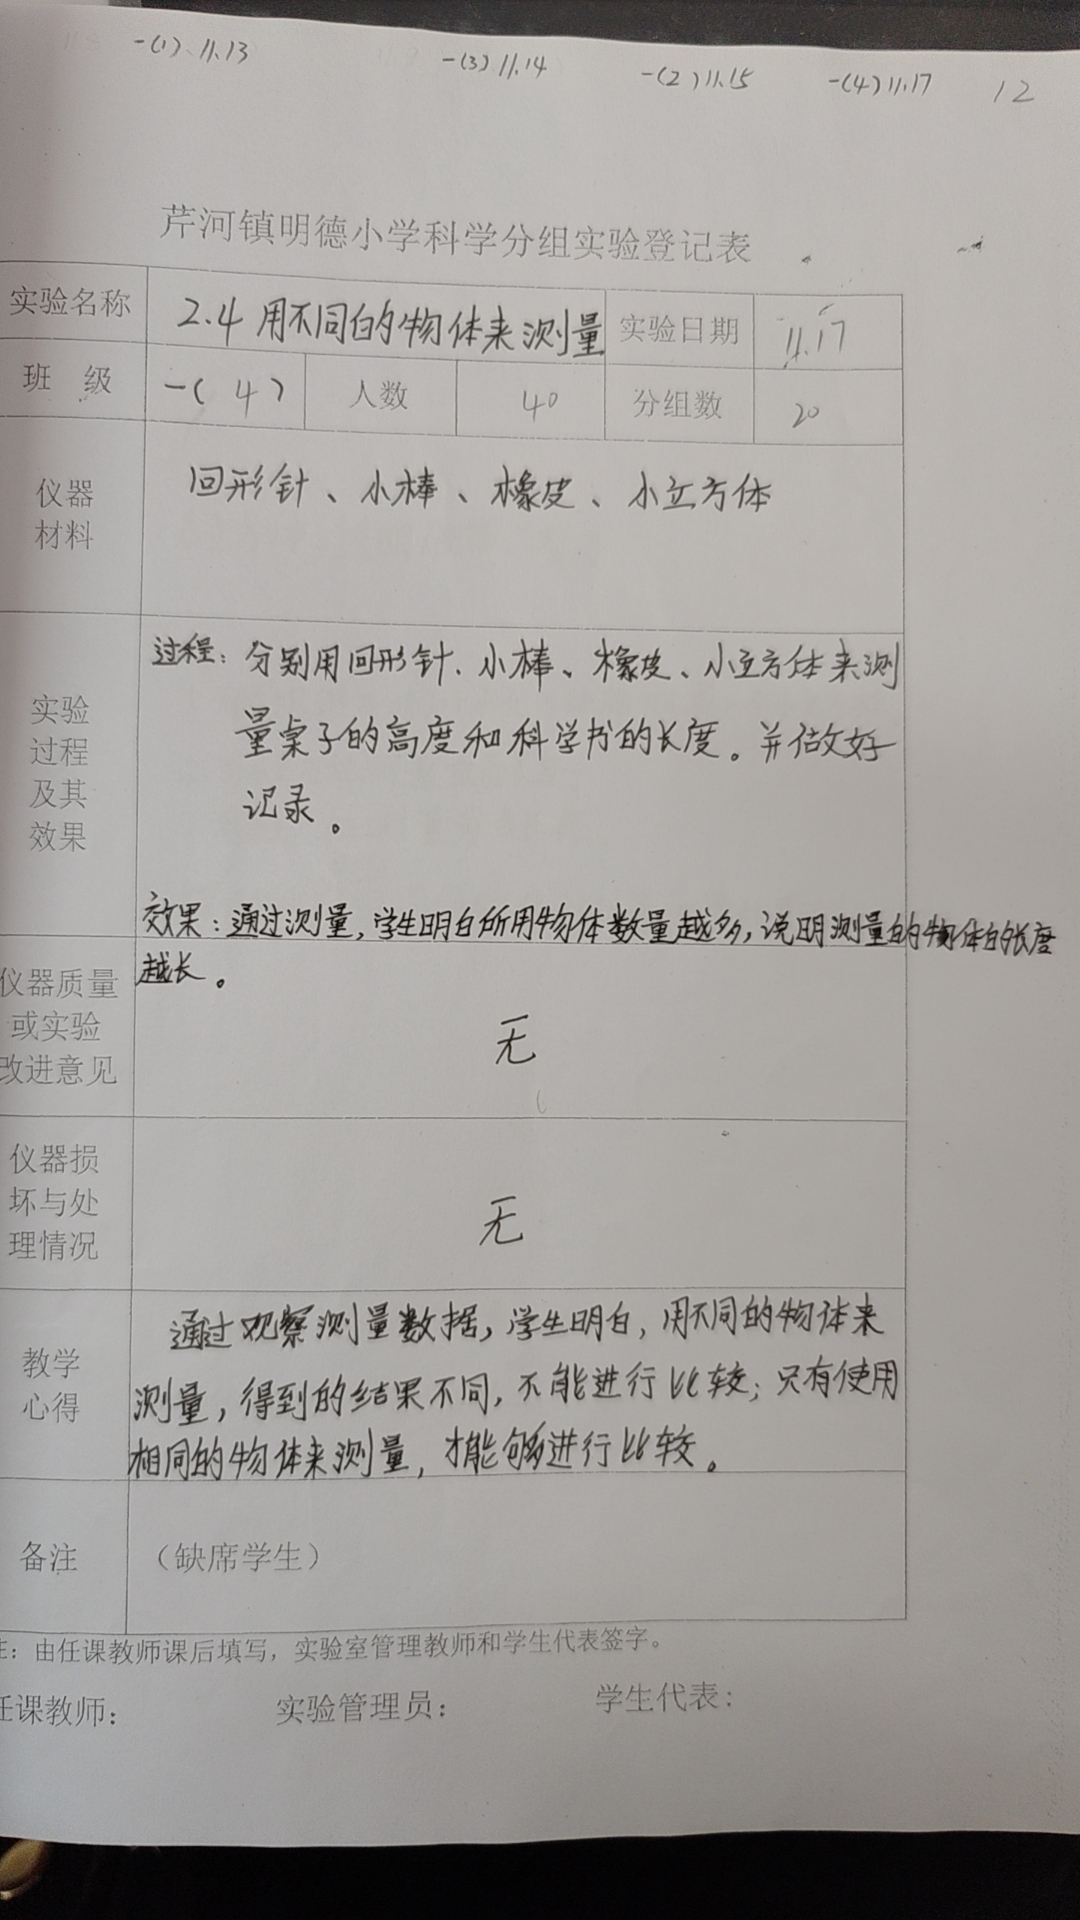 一(1) 11.13 一(3) 11.14 一(2) 11.15 一(4) 11.17 12
芹河镇明德小学科学分组实验登记表
实验名称 2.4 用不同的物体来测量 实验日期 11.17
班 级 一(4) 人数 40 分组数 20
仪器
材料
回形针、小棒、橡皮、小立方体
实验
过程
及其
效果
过程：分别用回形针、小棒、橡皮、小立方体来测
量桌子的高度和科学书的长度。并做好
记录。
效果：通过测量，学生明白所用物体数量越多，说明测量的物体的长度
越长。
仪器质量
或实验
改进意见
无
仪器损
坏与处
理情况
无
教学
心得
通过观察测量数据，学生明白，用不同的物体来
测量，得到的结果不同，不能进行比较；只有使用
相同的物体来测量，才能够进行比较。
备注 （缺席学生）
注：由任课教师课后填写，实验室管理教师和学生代表签字。
任课教师： 实验管理员： 学生代表：